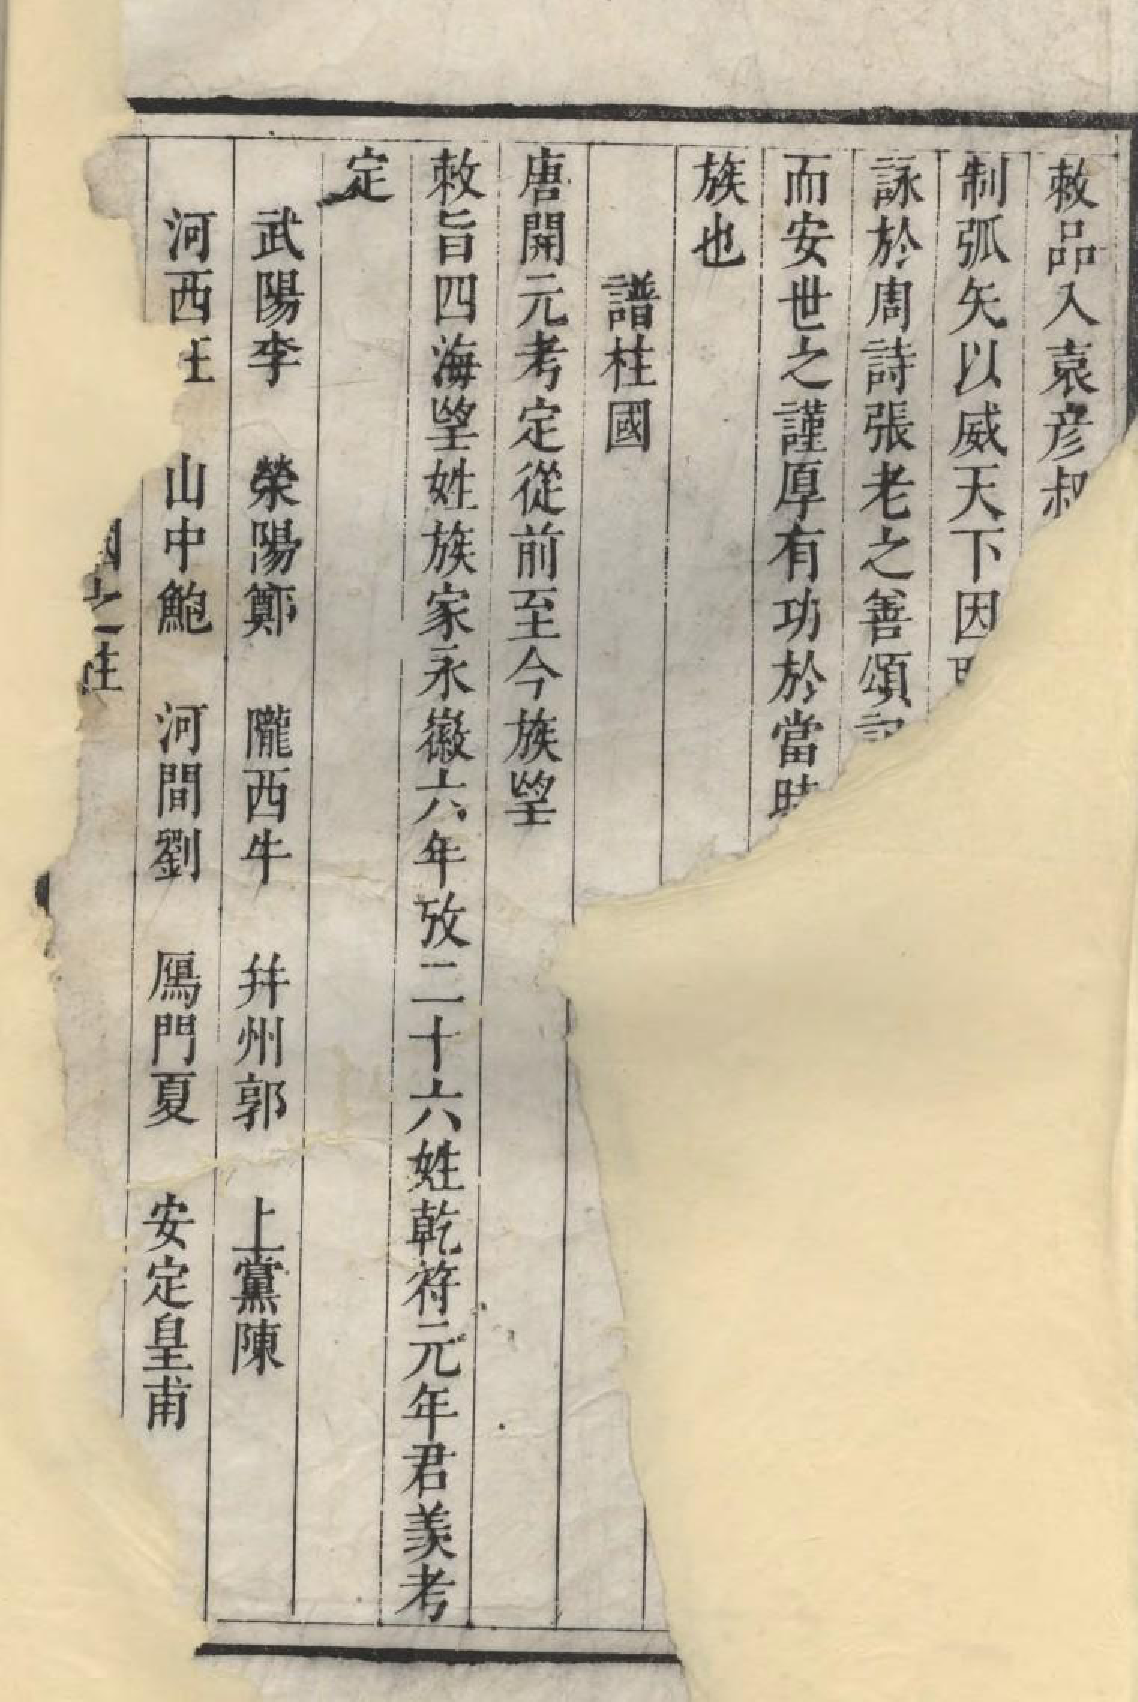 敕品入袁彦叔
制弧矢以威天下因
詠於周詩張老之善頌
而安世之謹厚有功於當時
族也
譜柱國
唐開元考定從前至今族望
敕旨四海望姓族家永徽六年攷二十六姓乾符元年君羨考
定
武陽李 滎陽鄭 隴西牛 幷州郭 上黨陳
河西 山中鮑 河間劉 鴈門夏 安定皇甫
之